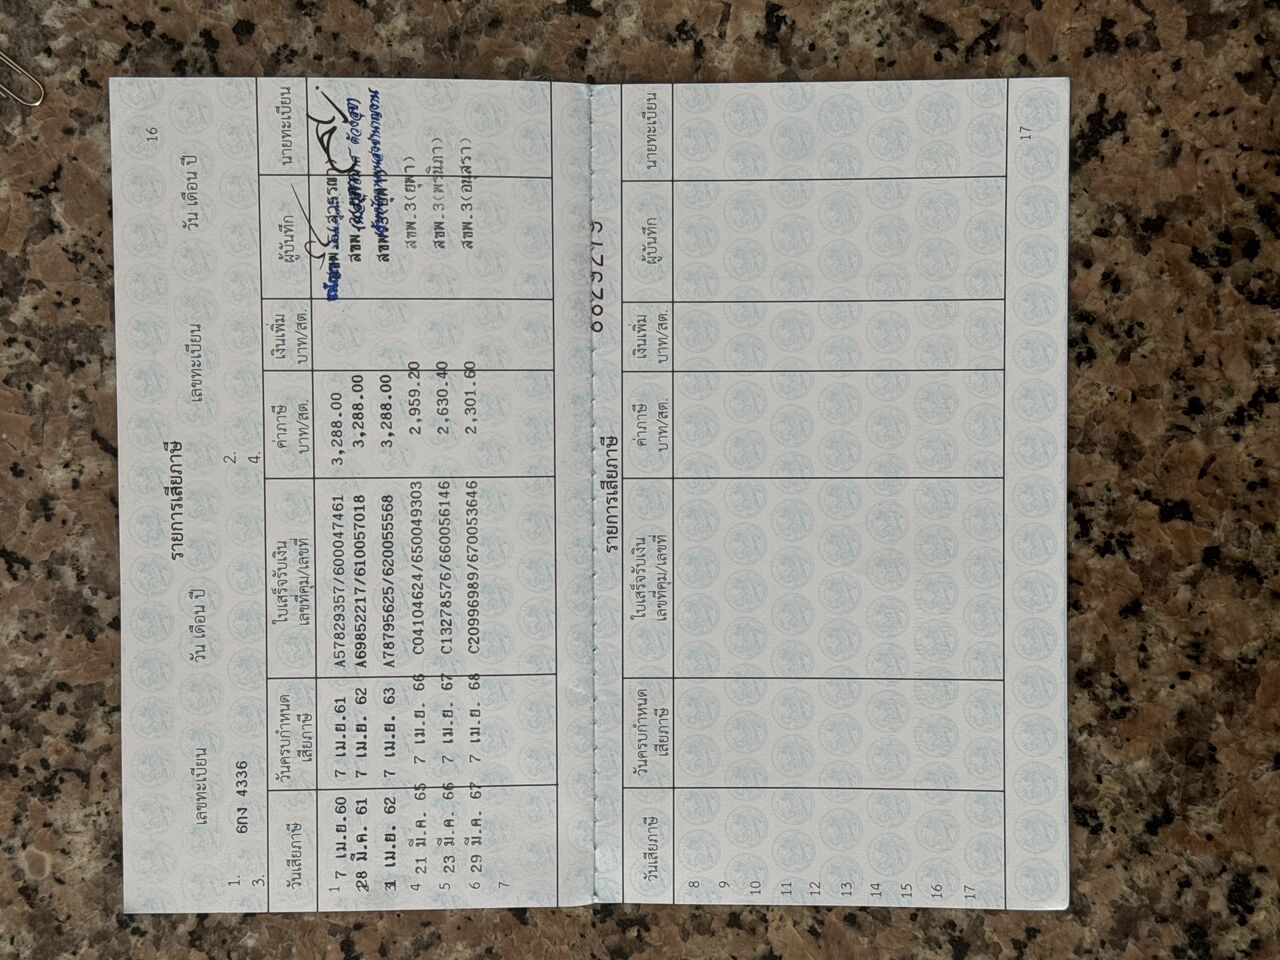 16
รายการเสียภาษี
เลขทะเบียน วัน เดือน ปี เลขทะเบียน วัน เดือน ปี
1. 6กง 4336 2.
3. 4.
วันเสียภาษี วันครบกำหนดเสียภาษี ใบเสร็จรับเงินเลขที่คุม/เลขที่ ค่าภาษีบาท/สต. เงินเพิ่มบาท/สต. ผู้บันทึก นายทะเบียน
1 7 เม.ย.60 7 เม.ย.61 A57829357/600047461 3,288.00
28 มี.ค. 61 7 เม.ย. 62 A69852217/610057018 3,288.00 สขพ
เม.ย. 62 7 เม.ย. 63 A78795625/620055568 3,288.00
4 21 มี.ค. 65 7 เม.ย. 66 C04104624/650049303 2,959.20 สขพ.3(ยุพา)
5 23 มี.ค. 66 7 เม.ย. 67 C13278576/660056146 2,630.40 สขพ.3(พรนิภา)
6 29 มี.ค. 67 7 เม.ย. 68 C20996989/670053646 2,301.60 สขพ.3(อนุสรา)
7
รายการเสียภาษี
วันเสียภาษี วันครบกำหนดเสียภาษี ใบเสร็จรับเงินเลขที่คุม/เลขที่ ค่าภาษีบาท/สต. เงินเพิ่มบาท/สต. ผู้บันทึก นายทะเบียน
8
9
10
11
12
13
14
15
16
17
17